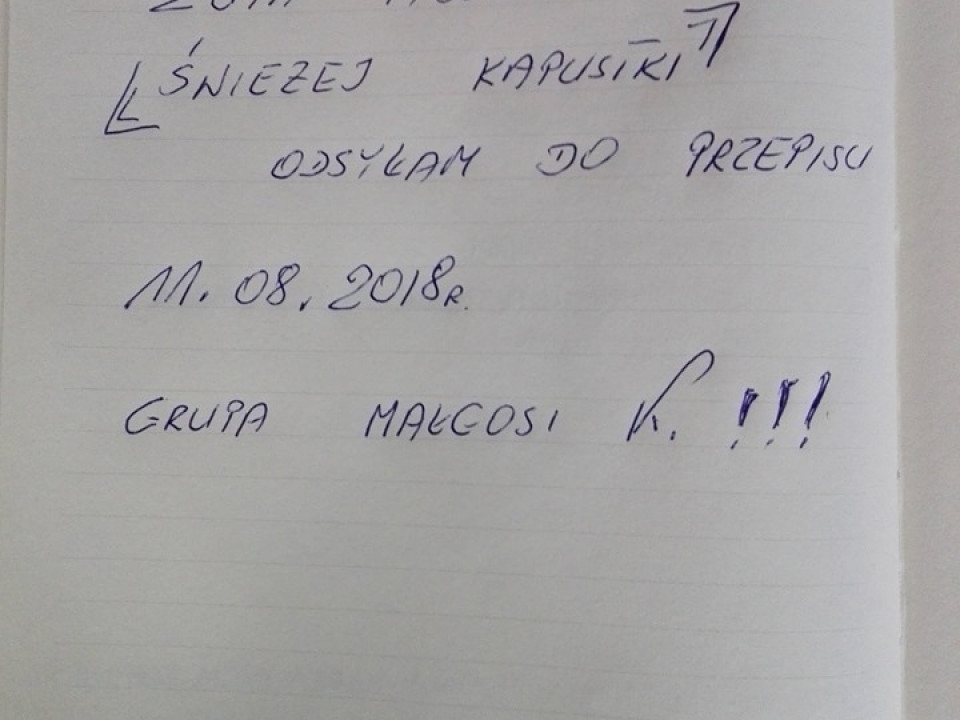 [ŚNIEZEJ KAPUSTKI]
ODSYŁAM DO PRZEPISU
11.08.2018R.
GRUPA MAŁGOSI K. !!!